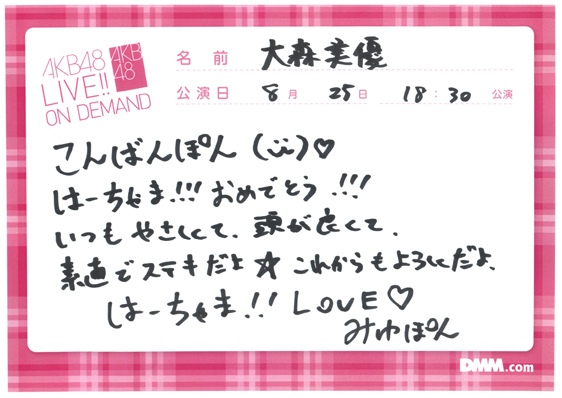 AKB48
LIVE!!
ON DEMAND
AKB
48
名前 大森美優
公演日 8月 25日 18:30 公演
こんばんぽん (ü)♡
はーちゃま!!! おめでとう!!!
いつもやさしくて、頭が良くて、
素直でステキだよ☆ これからもよろしくだよ、
はーちゃま!! LOVE♡
みゆぽん
DMM.com